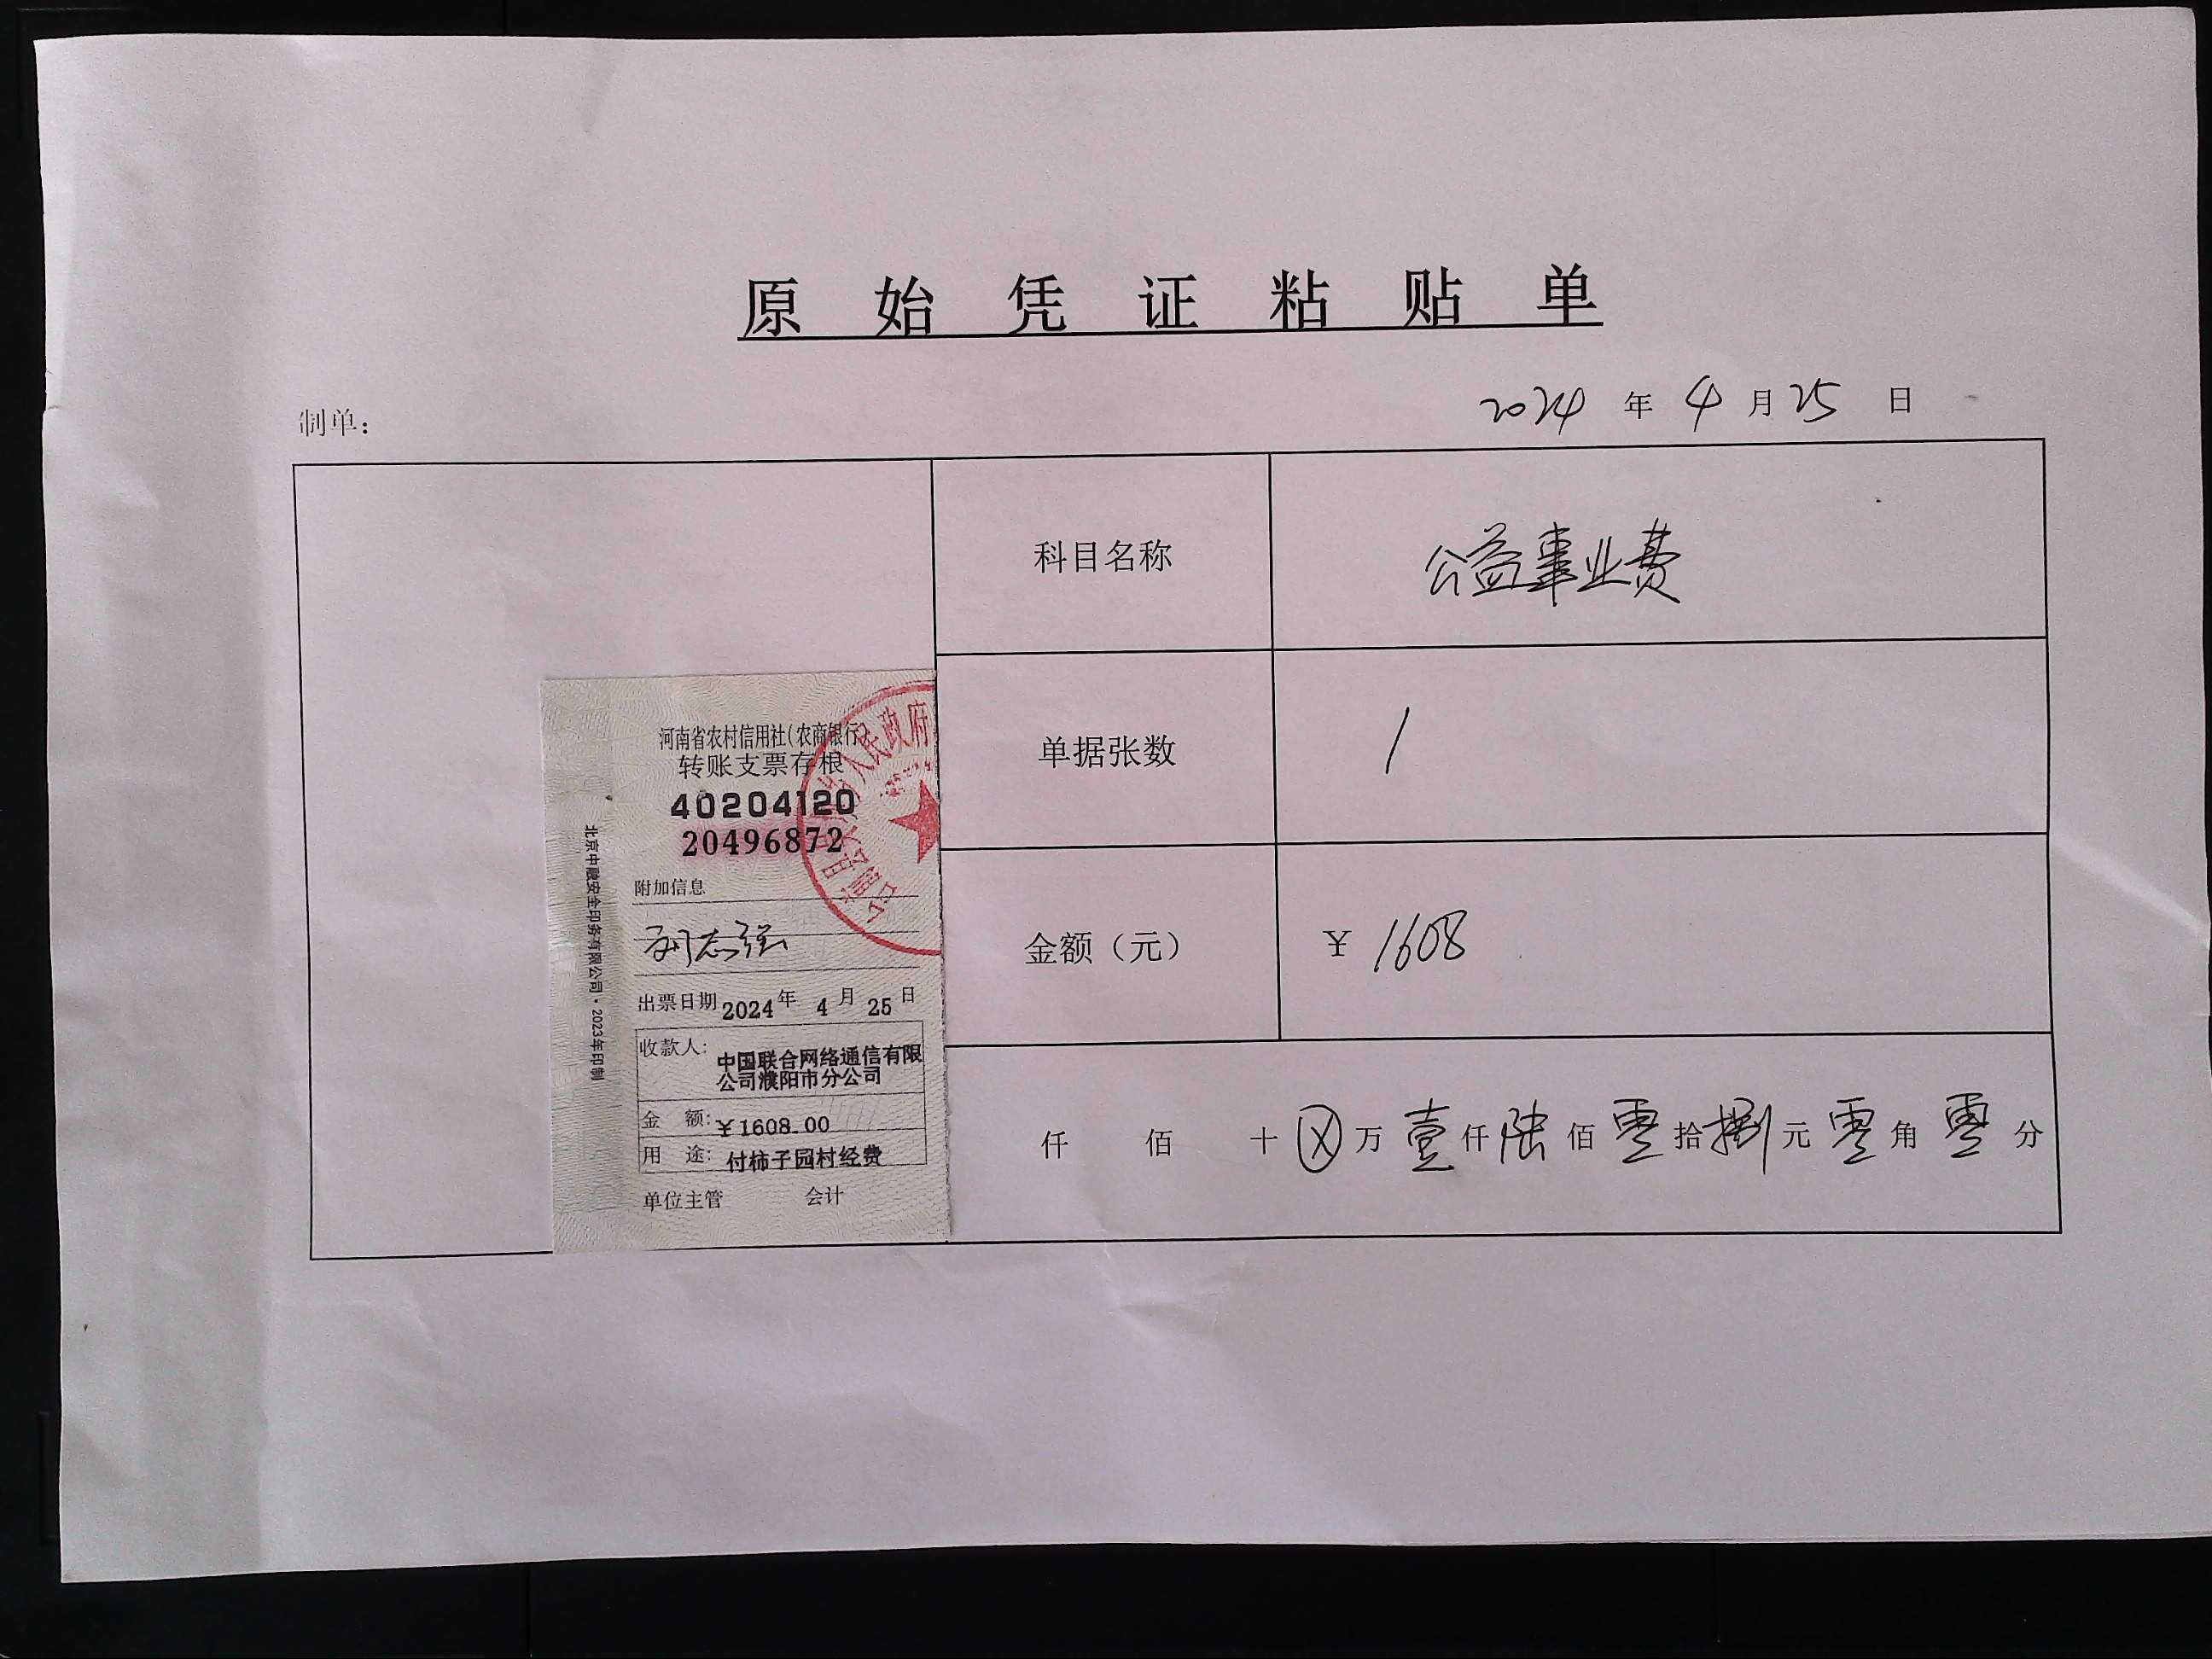 原始凭证粘贴单
制单：
2024年4月25日
科目名称 公益事业费
单据张数 1
金额（元） ¥1608
仟 佰 十ⓧ万壹仟陆佰零拾捌元零角零分
河南省农村信用社(农商银行)
转账支票存根
40204120
20496872
附加信息
出票日期 2024年4月25日
收款人：中国联合网络通信有限
公司濮阳市分公司
金 额：¥1608.00
用 途：付柿子园村经费
单位主管 会计
北京中融安全印务有限公司·2023年印制
人民政府